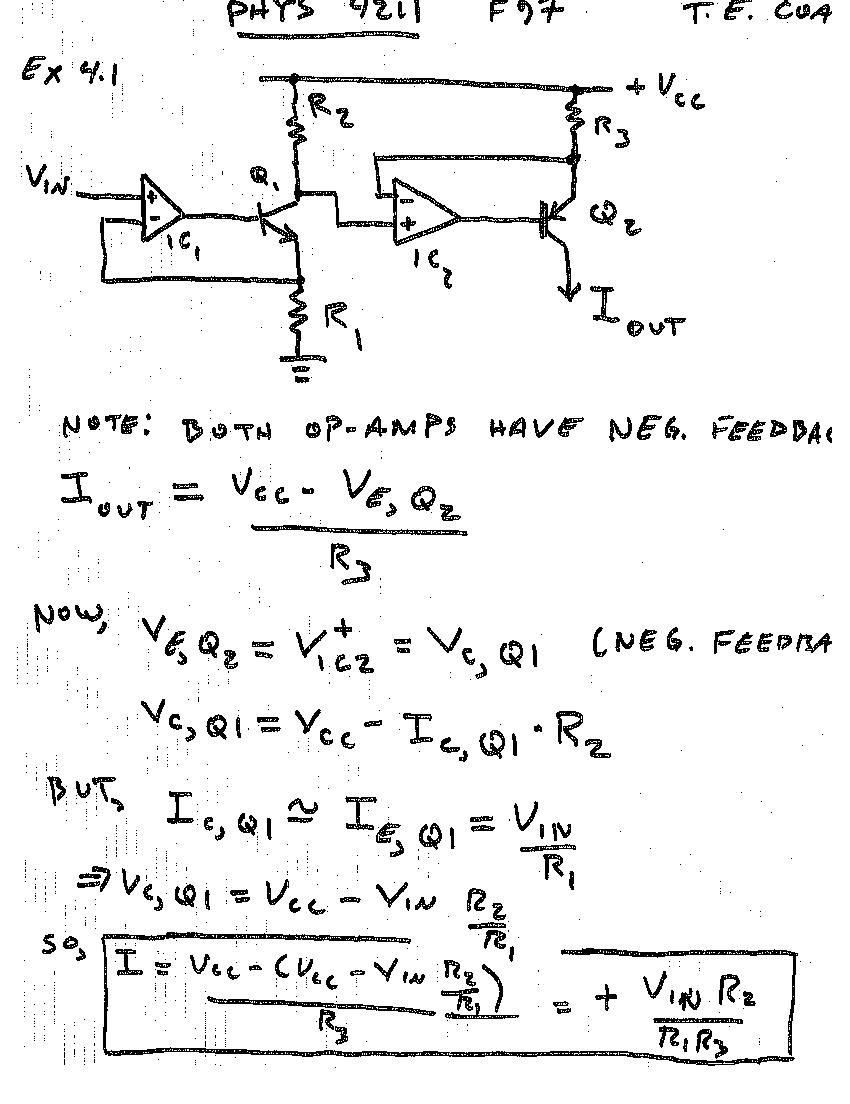 PHYS 4211 F97 T. E. COA
EX 4.1
+ VCC
R2
R3
VIN
Q1
+
-
IC1
-
+
IC2
Q2
IOUT
R1
NOTE: BOTH OP-AMPS HAVE NEG. FEEDBAC
IOUT = VCC - VE,Q2 / R3
NOW, VE,Q2 = V+IC2 = VC,Q1 (NEG. FEEDBA
VC,Q1 = VCC - IC,Q1 · R2
BUT, IC,Q1 ≃ IE,Q1 = VIN / R1
⇒ VC,Q1 = VCC - VIN R2 / R1
SO, I = VCC - (VCC - VIN R2 / R1) / R3 = + VIN R2 / R1R3